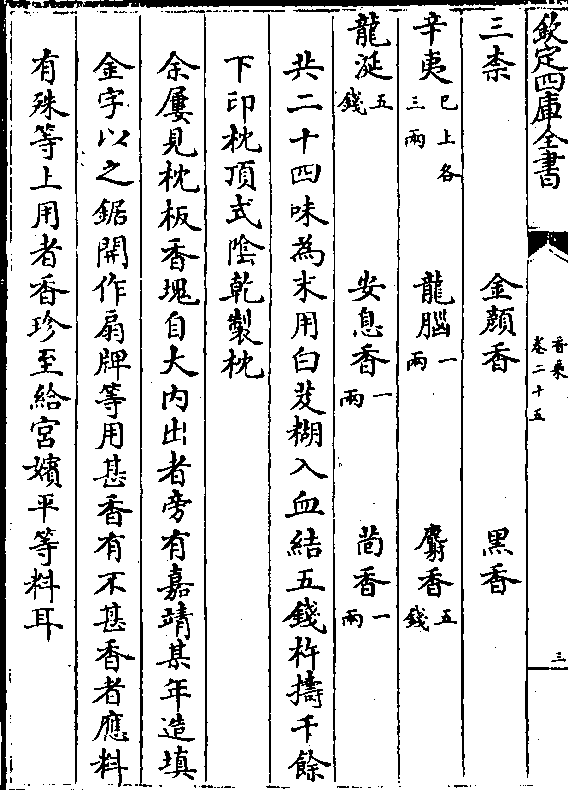 欽定四庫全書
香乘
卷二十五
三
三柰 金顔香 黑香
辛夷 已上各三兩 龍腦 一兩 麝香 五錢
龍涎 五錢 安息香 一兩 茴香 一兩
共二十四味為末用白芨糊入血結五錢杵擣千餘
下印枕頂式陰乾製枕
余屢見枕板香塊自大内出者旁有嘉靖某年造填
金字以之鋸開作扇牌等用甚香有不甚香者應料
有殊等上用者香珍至給宫嬪平等料耳